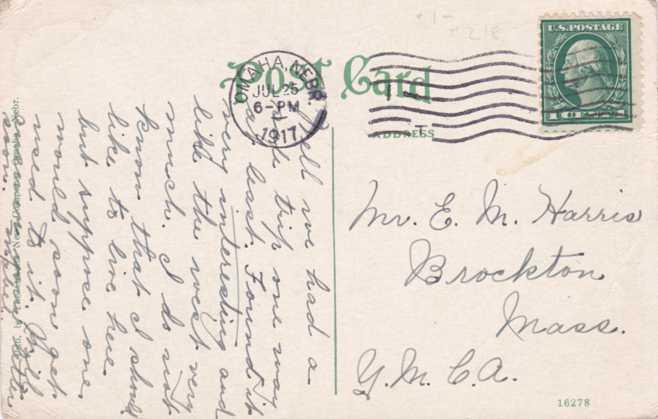 Post Card
ADDRESS
U.S. POSTAGE
OMAHA, NEBR.
JUL 25
6-PM
1917
Well we had a
trip one way
least. Found it
very interesting and
like the west very
much. I do not
know that I should
like to live here
but suppose one
would soon get
used to it. Will
soon.
Mr. E. M. Harris
Brockton
Mass.
Y. M. C. A.
16278